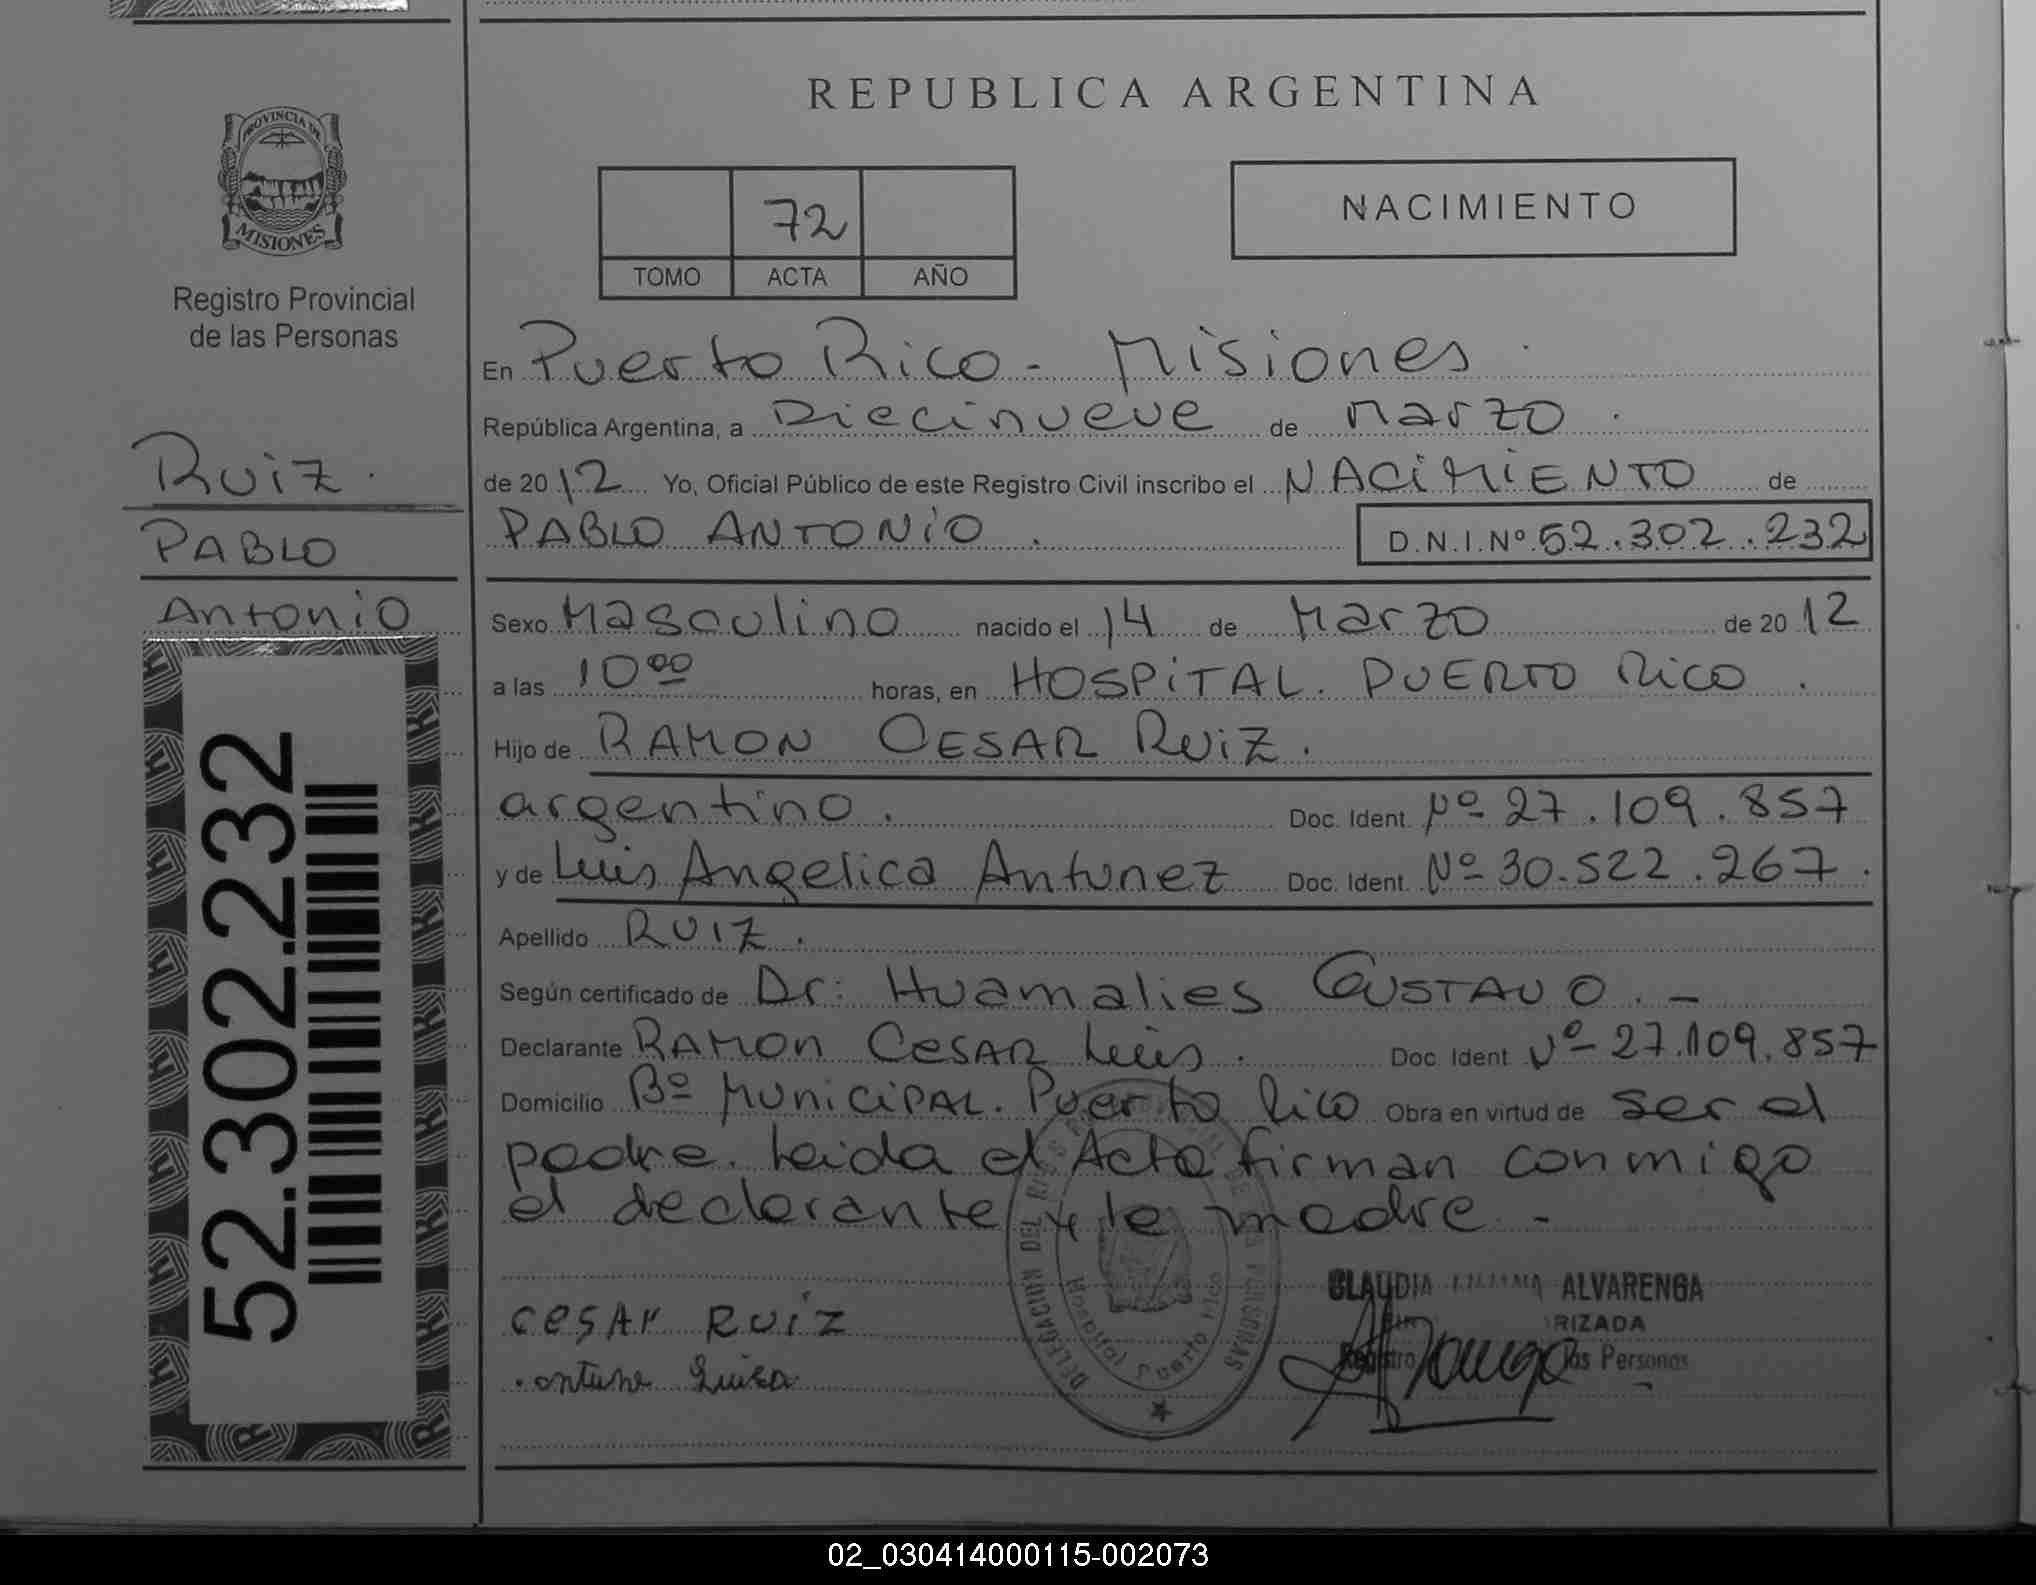 REPUBLICA ARGENTINA
PROVINCIA DE
MISIONES
Registro Provincial
de las Personas
72
TOMO ACTA AÑO
NACIMIENTO
En Puerto Rico - Misiones.
República Argentina, a Diecinueve de Marzo.
de 2012 Yo, Oficial Público de este Registro Civil inscribo el NACIMIENTO de
PABLO ANTONIO. D.N.I.Nº 52.302.232
Ruiz.
PABLO
Antonio
52.302.232
Sexo Masculino nacido el 14 de Marzo de 2012
a las 10 00 horas, en HOSPITAL. PUERTO RICO.
Hijo de RAMON CESAR RUIZ.
argentino. Doc. Ident. Nº 27.109.857
y de Luis Angelica Antunez Doc. Ident. Nº 30.522.267.
Apellido RUIZ.
Según certificado de Dr: Huamalies GUSTAVO. -
Declarante RAMON CESAR Luis. Doc. Ident Nº 27.109.857
Domicilio Bº MUNICIPAL. Puerto Rico Obra en virtud de ser el
padre. Leida el Acta firman conmigo
el declarante y la madre. -
CESAR RUIZ
antune Luisa
CLAUDIA ALVARENGA
RIZADA
Registro las Personas
DELEGACION DEL
Hospital Puerto Rico
02_030414000115-002073